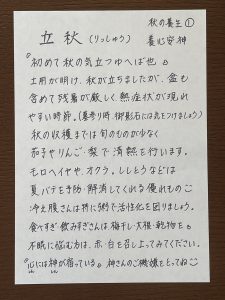 秋の養生①
立秋(りっしゅう) 養心安神
『初めて秋の気立つゆへば也』
土用が明け、秋が立ちましたが、盆も
含めて残暑が厳しく熱症状が現れ
やすい時節。(墓参り時、御影石には気をつけましょう)
秋の収穫までは旬のものが少なく
茄子やりんご・梨で清熱を行います。
モロヘイヤや、オクラ、ししとうなどは
夏バテを予防・解消してくれる優れもの
冷え腹さんは特に粥で活性化を図りましょう。
食べすぎ・飲みすぎさんは、梅干し・大根・乾物を。
不眠に悩む方は、赤・白を召し上ってみてください。
『心には神が宿っている』神さんのご機嫌をとってね